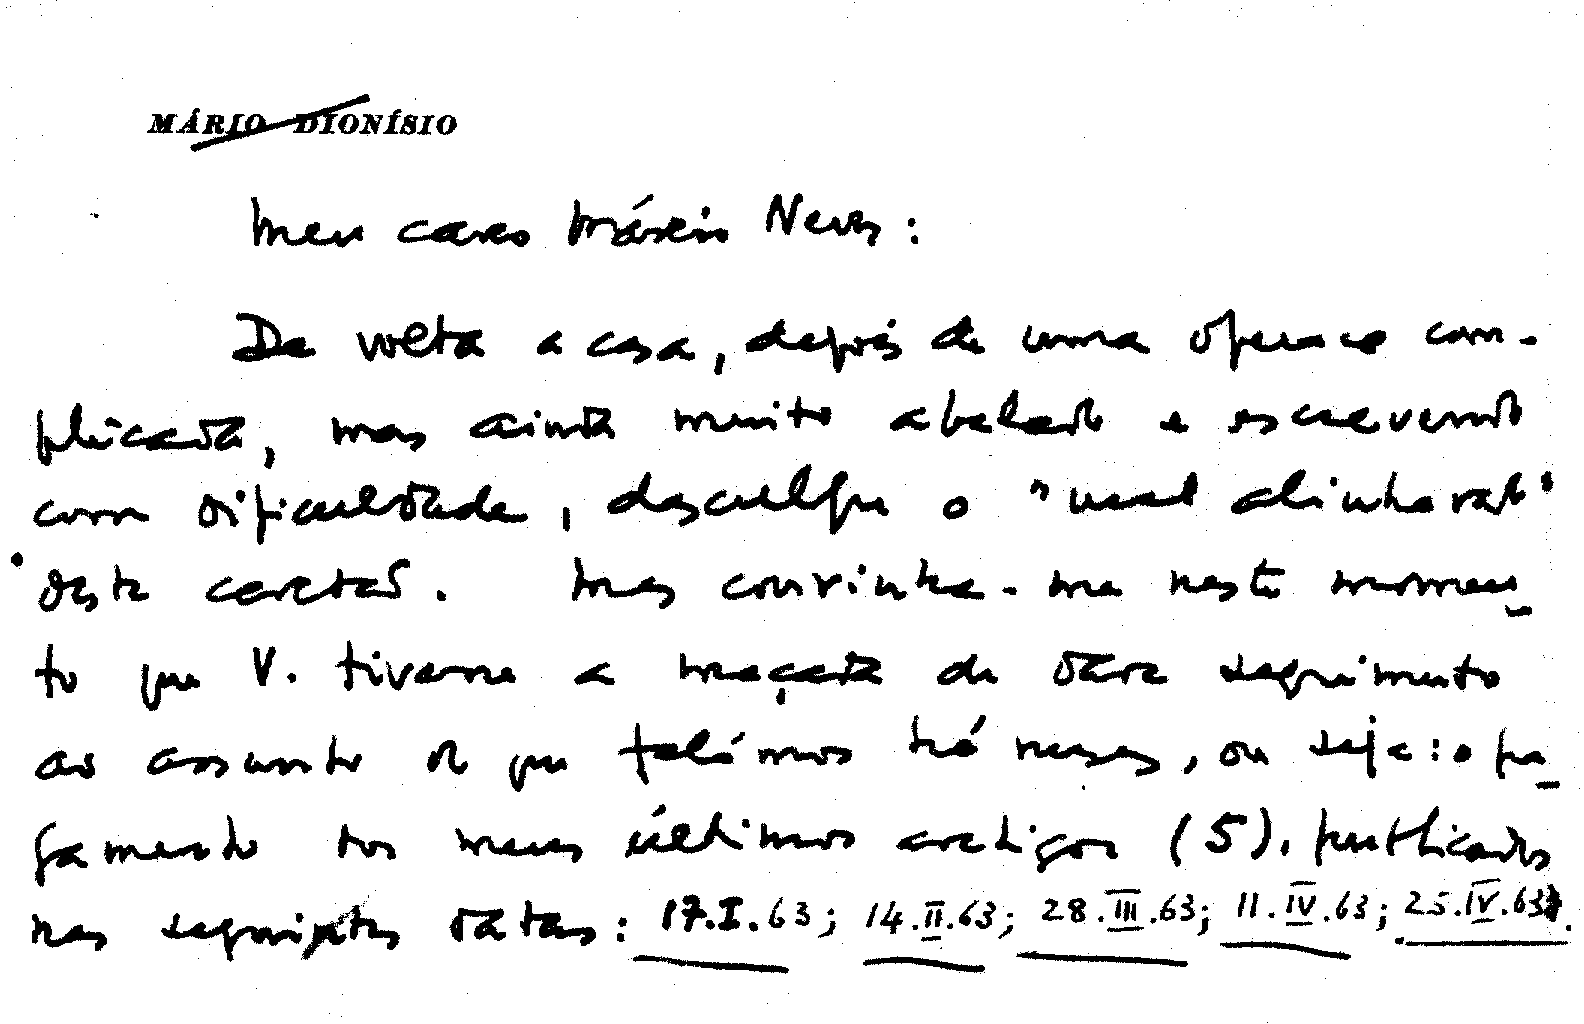 MÁRIO DIONÍSIO
Meu caro Mário Neves:
De volta a casa, depois de uma operação com-
plicada, mas ainda muito abalado e escrevendo
com dificuldade, desculpe o "mal alinhavado"
desta carta. Mas convinha-me neste momen-
to que V. tivesse a maçada de dar seguimento
ao assunto de que falámos há meses, ou seja: o pa-
gamento dos meus últimos artigos (5), publicados
nas seguintes datas: 17.I.63; 14.II.63; 28.III.63; 11.IV.63; 25.IV.63.